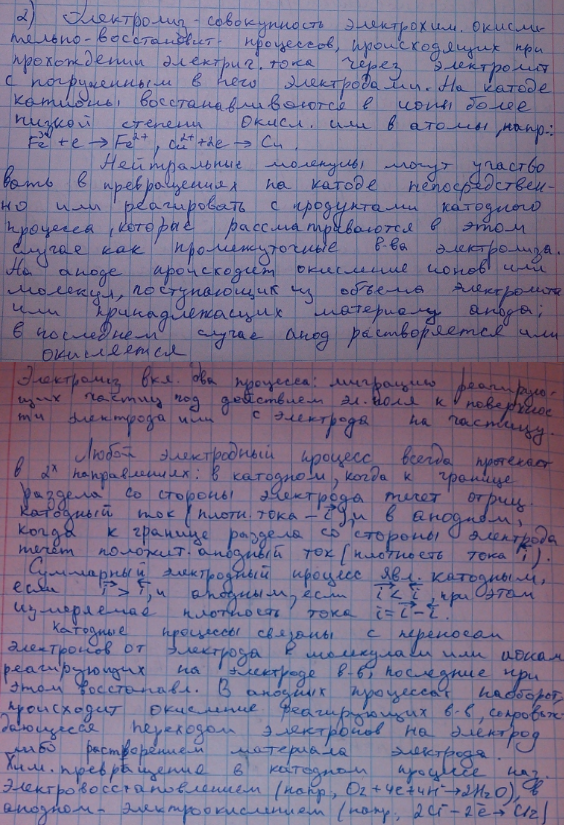 2) Электролиз - совокупность электрохим. окисли-
тельно-восстановит. процессов, происходящих при
прохождении электрич. тока через электролит
с погруженным в него электродами. На катоде
катионы восстанавливаются в ионы более
низкой степени окисл. или в атомы, напр.:
Fe³⁺ + e → Fe²⁺, Cu²⁺ + 2e → Cu.
Нейтральные молекулы могут участво
вать в превращениях на катоде непосредствен-
но или реагировать с продуктами катодного
процесса, которые рассматриваются в этом
случае как промежуточные в-ва электролиза.
На аноде происходит окисление ионов или
молекул, поступающих из объема электролита
или принадлежащих материалу анода;
в последнем случае анод растворяется или
окисляется
Электролиз вкл. два процесса: миграцию реагирую-
щих частиц под действием эл. поля к поверхнос
ти электрода или с электрода на частицу.
Любой электродный процесс всегда протекает
в 2х направлениях: в катодном, когда к границе
раздела со стороны электрода течет отриц.
катодный ток (плотн. тока - i⃗), и в анодном,
когда к границе раздела со стороны электрода
течет положит. анодный ток (плотность тока i⃖).
Суммарный электродный процесс явл. катодным,
если i⃗ > i⃖, и анодным, если i⃗ < i⃖, при этом
измеряемая плотность тока i = i⃗ - i⃖.
Катодные процессы связаны с переносом
электронов от электрода к молекулам или ионам
реагирующих на электроде в-в, последние при
этом восстанавл. В анодных процессах наоборот,
происходит окисление реагирующих в-в, сопровож-
дающееся переходом электронов на электрод
либо растворением материала электрода.
Хим. превращение в катодном процессе наз.
электровосстановлением (напр., O₂ + 4e + 4H⁺ → 2H₂O), в
анодном - электроокислением (напр., 2Cl⁻ - 2e → Cl₂)